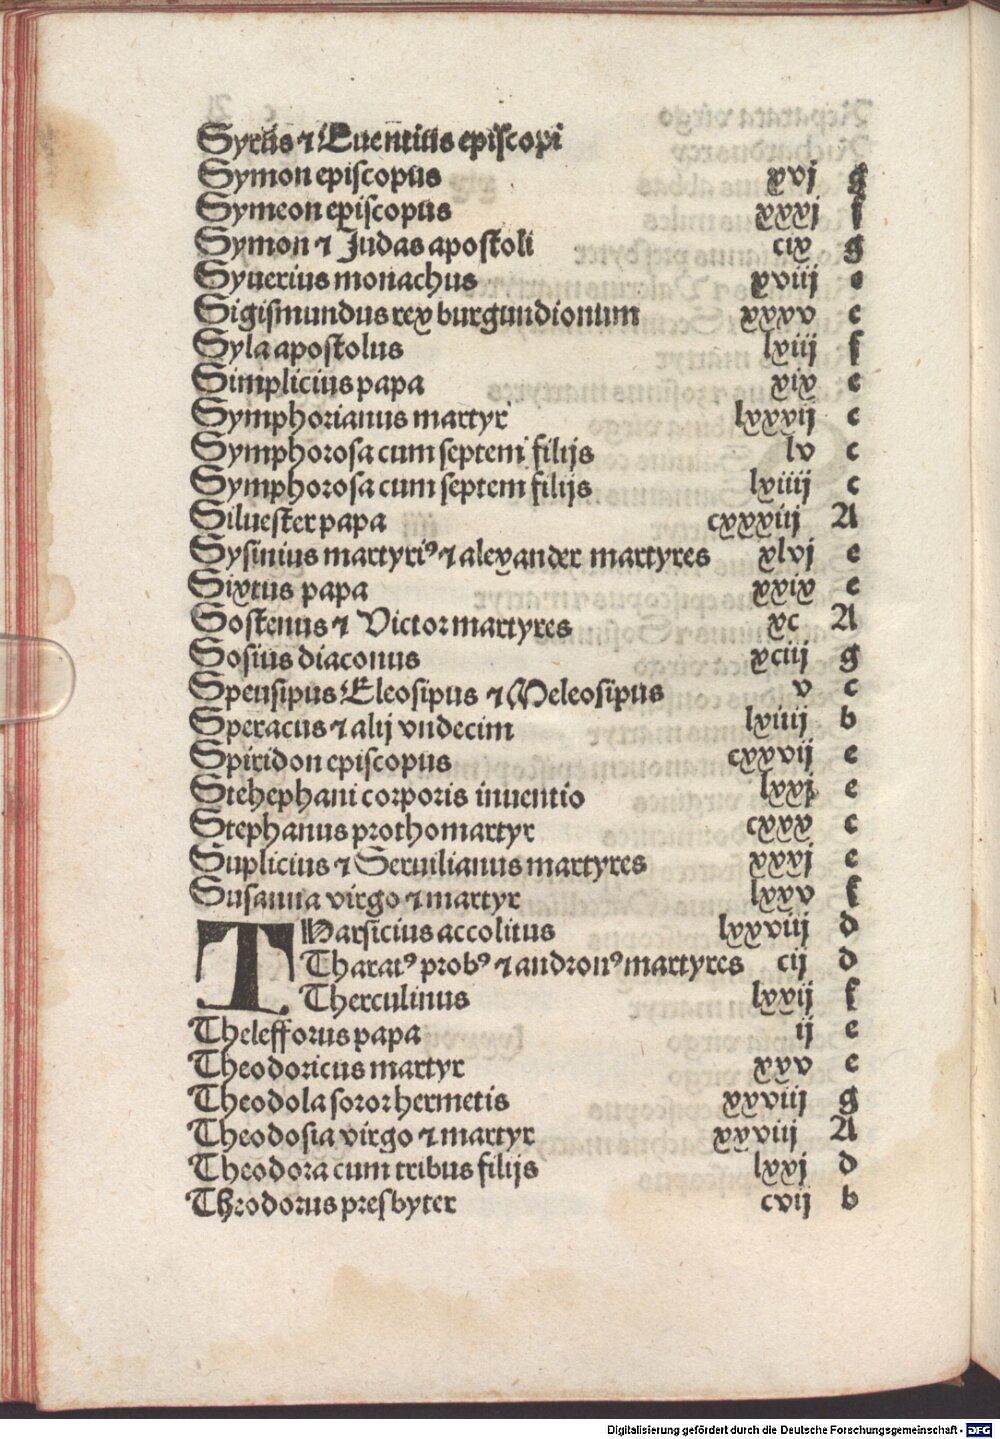 Syrus ⁊ Euentius episcopi
Symon episcopus xvj g
Symeon episcopus xxxj f
Symon ⁊ Judas apostoli cix g
Syuerius monachus xviij e
Sigismundus rex burgundionum xxxv c
Syla apostolus lxiij f
Simplicius papa xix e
Symphorianus martyr lxxxvij c
Symphorosa cum septem filijs lv c
Symphorosa cum septem filijs lxiiij c
Siluester papa cxxxiij A
Sysinius martyriꝰ ⁊ alexander martyres xlvj e
Sixtus papa xxix e
Sostenus ⁊ Victor martyres xc A
Sosius diaconus xciij g
Speusipus Eleosipus ⁊ Meleosipus v c
Speracus ⁊ alij vndecim lxiiij b
Spiridon episcopus cxxvij e
Stehephani corporis inuentio lxxj e
Stephanus prothomartyr cxxx c
Suplicius ⁊ Seruilianus martyres xxxj e
Susanna virgo ⁊ martyr lxxv f
THarsicius accolitus lxxviij d
Tharatꝰ probꝰ ⁊ andronꝰ martyres cij d
Therculinus lxxij f
Thelefforus papa ij e
Theodoricus martyr xxv e
Theodola soror hermetis xxviij g
Theodosia virgo ⁊ martyr xxviij A
Theodora cum tribus filijs lxxj d
Throdorus presbyter cvij b
Digitalisierung gefördert durch die Deutsche Forschungsgemeinschaft - DFG